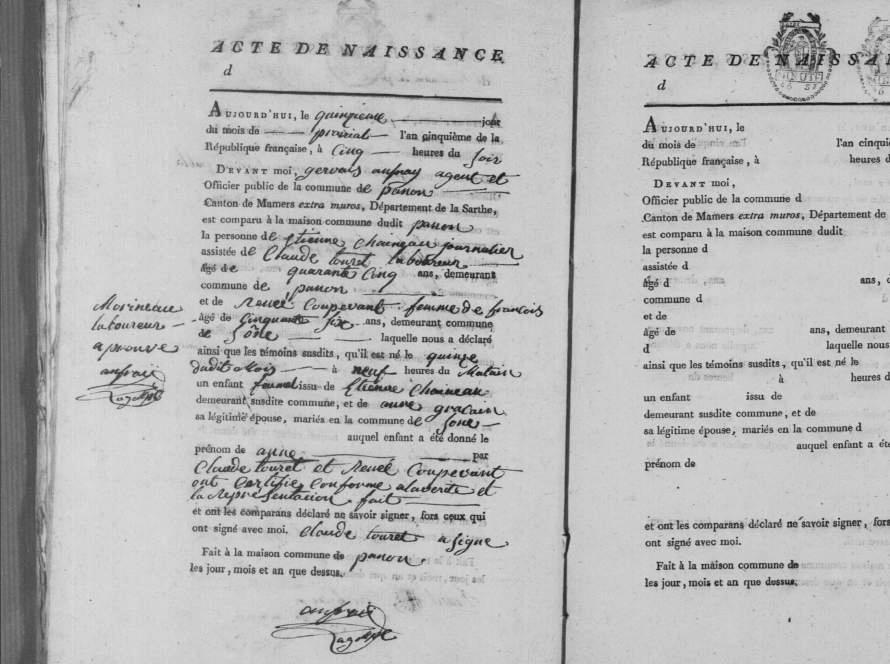 ACTE DE NAISSANCE
d
AUJOURD'HUI, le quinzieme jour
du mois de prairial l'an cinquième de la
République française, à Cinq heures du soir
DEVANT moi, gervais aufray agent et
Officier public de la commune de panon
Canton de Mamers extra muros, Département de la Sarthe,
est comparu à la maison commune dudit panon
la personne de Etienne Chaineau journalier
assistée de Claude touret laboureur
âgé de quarante Cinq ans, demeurant
commune de panon
et de Renée Coupevant femme de francois
Morineau
laboureur
aprouve
aufrai
âgé de Cinquante six ans, demeurant commune
de Sône laquelle nous a déclaré
ainsi que les témoins susdits, qu'il est né le quinze
dudit Mois à neuf heures du Matain
un enfant issu de Etienne Chaineau
demeurant susdite commune, et de anne
sa légitime épouse, mariés en la commune de Sone
auquel enfant a été donné le
prénom de anne par
Claude touret et Renée Coupevant
ont Certifie Conforme alaverite et
la fait
et ont les comparans déclaré ne savoir signer, fors ceux qui
ont signé avec moi. Claude touret a signe
Fait à la maison commune de panon
les jour, mois et an que dessus.
aufrai
agent
ACTE DE NAISSA
d
AUJOURD'HUI, le
du mois de l'an cinqui
République française, à heures d
DEVANT moi,
Officier public de la commune d
Canton de Mamers extra muros, Département de
est comparu à la maison commune dudit
la personne d
assistée d
âgé d ans, d
commune d
et de
âgé de ans, demeurant
d laquelle nous
ainsi que les témoins susdits, qu'il est né le
à heures d
un enfant issu de
demeurant susdite commune, et de
sa légitime épouse, mariés en la commune d
auquel enfant a été
prénom de
et ont les comparans déclaré ne savoir signer, fors
ont signé avec moi.
Fait à la maison commune de
les jour, mois et an que dessus.